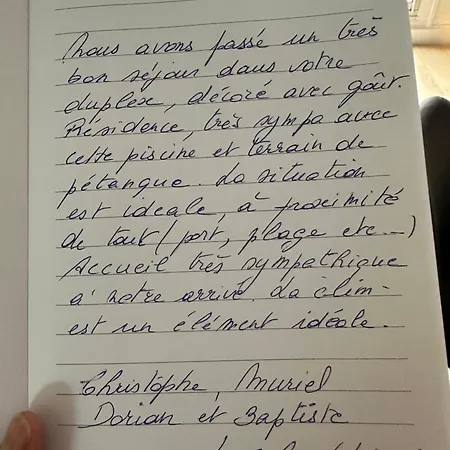 Nous avons passé un très
bon séjour dans votre
duplexe, décoré avec goût.
Résidence, très sympa avec
cette piscine et terrain de
pétanque. La situation
est ideale, à proximité
de tout (port, plage etc...)
Accueil très sympathique
a' notre arrivé. La clim-
est un élément idéale.
Christophe, Muriel
Dorian et Baptiste